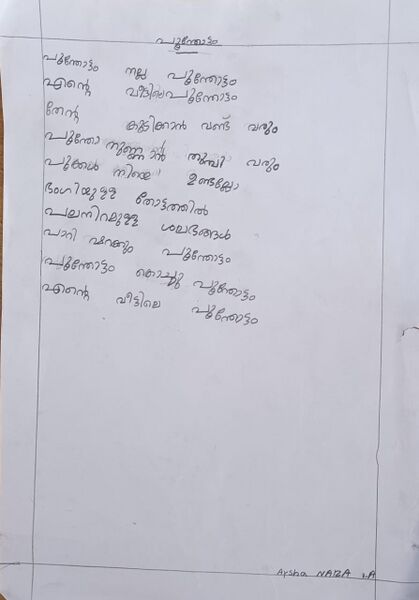 പൂന്തോട്ടം
പൂന്തോട്ടം നല്ല പൂന്തോട്ടം
എന്റെ വീട്ടിലെ പൂന്തോട്ടം
തേൻ കുടിക്കാൻ വണ്ട് വരും
പൂന്തേൻ നുണയാൻ തുമ്പി വരും
പൂക്കൾ നിറയെ ഉണ്ടല്ലോ
ഭംഗിയുള്ള തോട്ടത്തിൽ
പലനിറമുള്ള ശലഭങ്ങൾ
പാറി പറക്കും പൂന്തോട്ടം
പൂന്തോട്ടം കൊച്ചു പൂന്തോട്ടം
എന്റെ വീട്ടിലെ പൂന്തോട്ടം
Aysha NAIZA 1.A